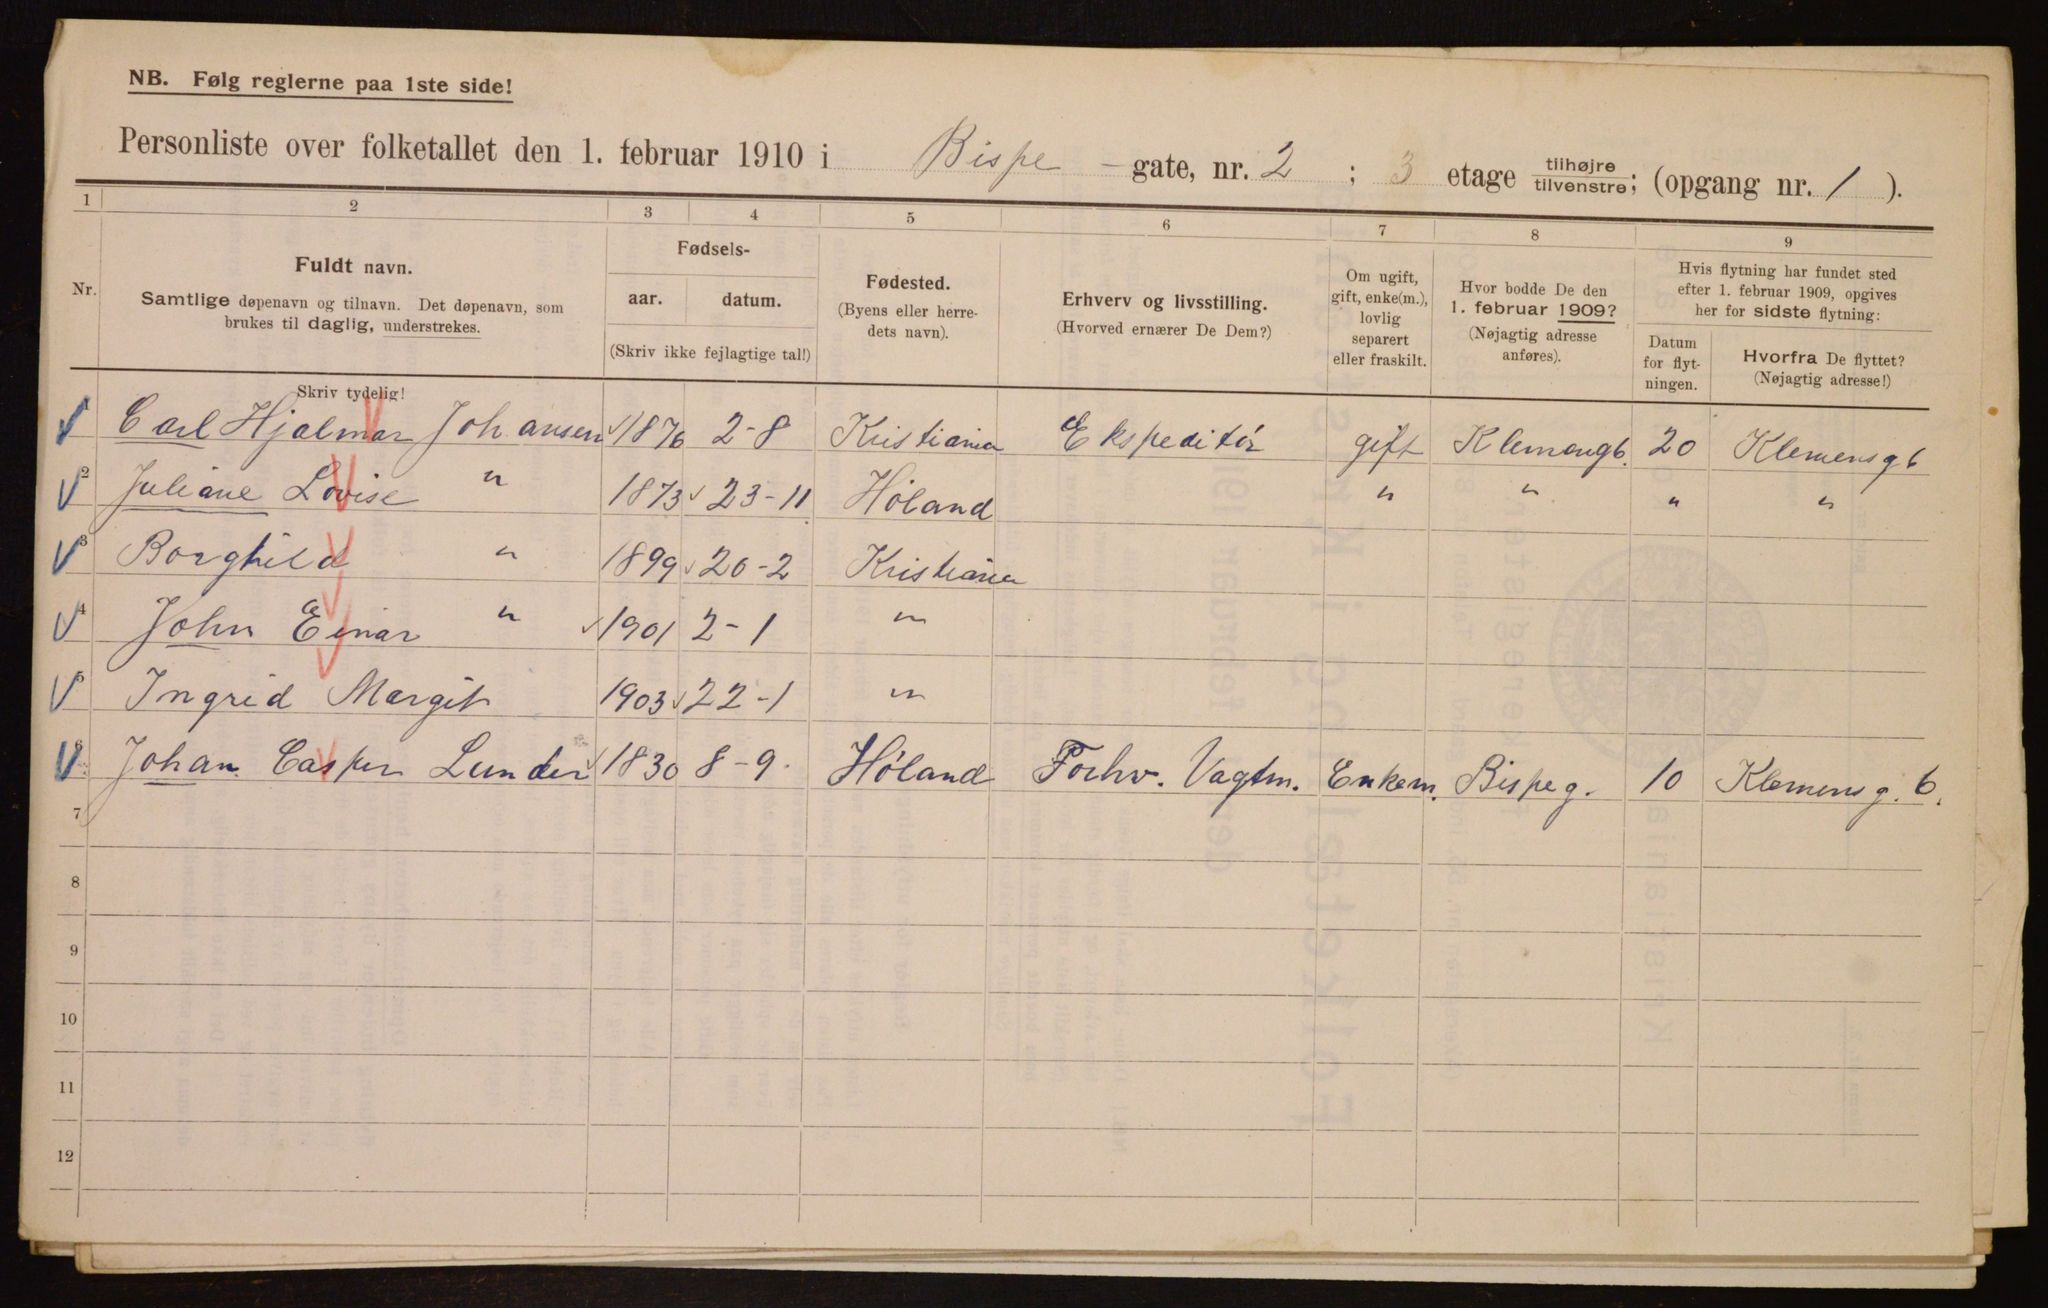 NB. Følg reglerne paa 1ste side!
Personliste over folketallet den 1. februar 1910 i Bispe - gate, nr. 2 ; 3 etage tilhøjre/tilvenstre; (opgang nr. 1 ).
1 2 3 4 5 6 7 8 9
Nr.
Fuldt navn.
Samtlige døpenavn og tilnavn. Det døpenavn, som
brukes til daglig, understrekes.
Skriv tydelig!
Fødsels-
aar. datum.
(Skriv ikke fejlagtige tal!)
Fødested.
(Byens eller herre-
dets navn).
Erhverv og livsstilling.
(Hvorved ernærer De Dem?)
Om ugift,
gift, enke(m.),
lovlig
separert
eller fraskilt.
Hvor bodde De den
1. februar 1909?
(Nøjagtig adresse
anføres).
Hvis flytning har fundet sted
efter 1. februar 1909, opgives
her for sidste flytning:
Datum
for flyt-
ningen.
Hvorfra De flyttet?
(Nøjagtig adresse!)
1 Carl Hjalmar Johansen 1876 2-8 Kristiania Ekspeditør gift Klemensg 6. 20 Klemensg 6
2 Juliane Lovise " 1873 23-11 Høland " " " "
3 Borghild " 1899 20-2 Kristiania
4 John Einar " 1901 2-1 "
5 Ingrid Margit 1903 22-1 "
6 Johan Casper Lunder 1830 8-9. Høland Forhv. Vagtm. Enkem. Bispeg. 10 Klemensg. 6.
7
8
9
10
11
12